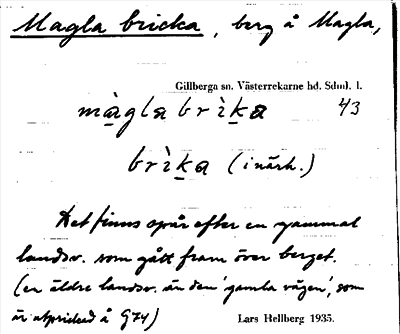 Magla bricka, berg å Magla,
Gillberga sn. Västerrekarne hd. Sdml. l.
màgla brìka 43
brìka (inärh.)
Det finns spår efter en gammal
landsv. som gått fram över berget.
(en äldre landsv. än den 'gamla vägen', som
är utprickad å G74)
Lars Hellberg 1935.